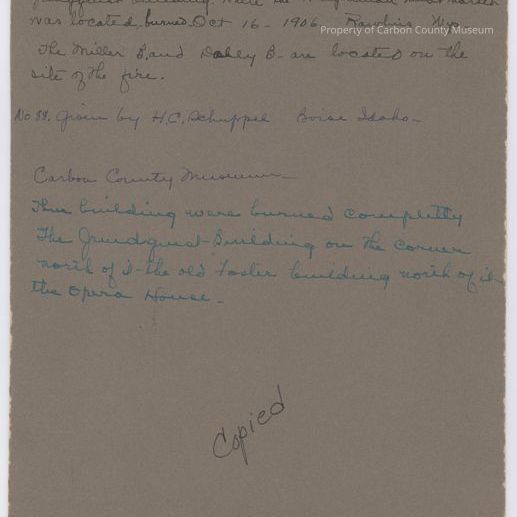 building where the
was located, burned Oct 16 - 1906. Rawlins, Wyo.
Property of Carbon County Museum
The Miller B, and Dahly B - are located on the
site of the fire.
No 88. given by H.C. Schuppel Boise Idaho -
Carbon County Museum -
building were burned completty
The Building on the corner
north of it - the old Foster building north of it -
the Opera House -
Copied